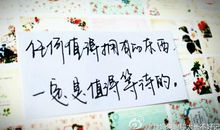 任何值得拥有的东西
一定是值得等待的。